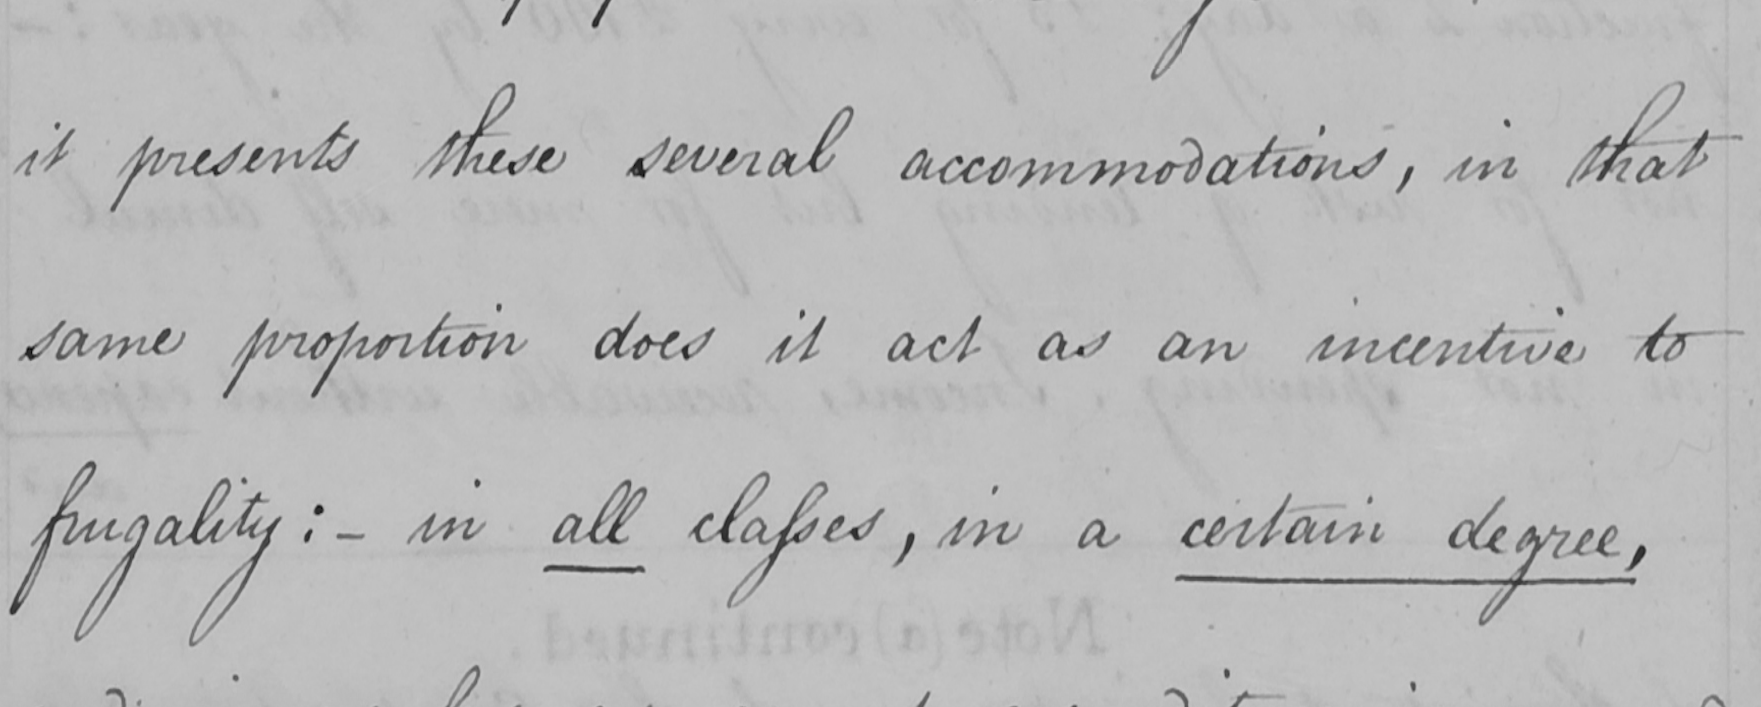 it presents these several accommodations, in that
same proportion does it act as an incentive to
frugality:- in all claſses, in a certain degree,